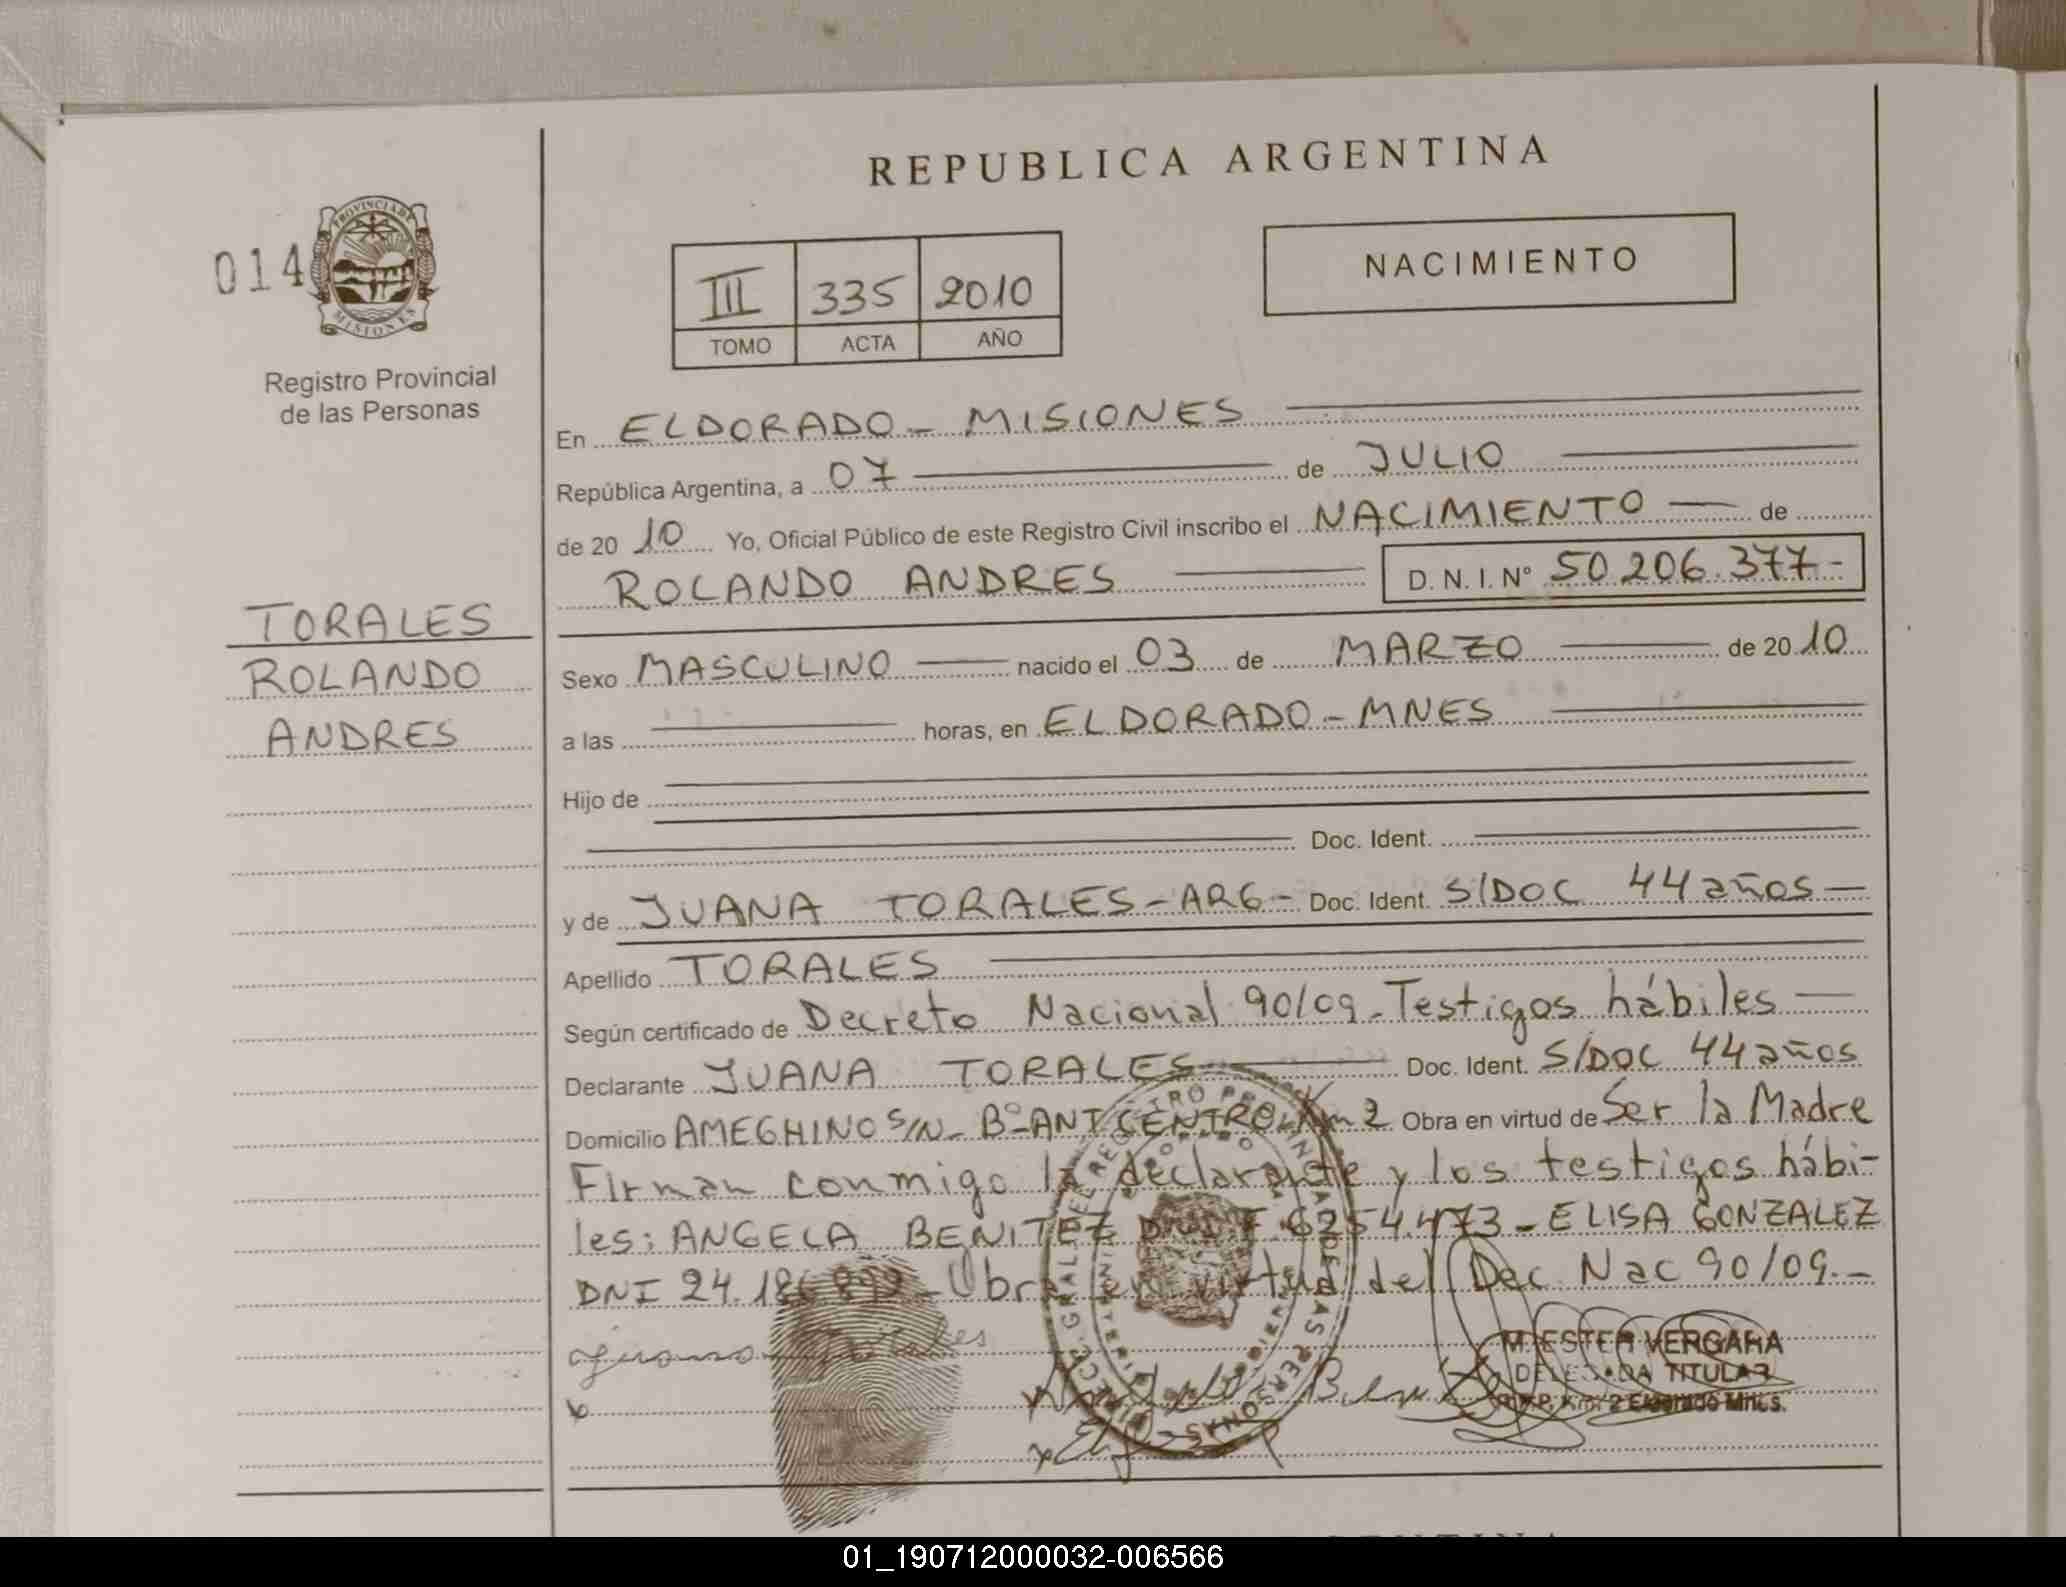 REPUBLICA ARGENTINA
014
PROVINCIA DE
MISIONES
Registro Provincial
de las Personas
III 335 2010
TOMO ACTA AÑO
NACIMIENTO
En ELDORADO - MISIONES
República Argentina, a 07 de JULIO
de 20 10 Yo, Oficial Público de este Registro Civil inscribo el NACIMIENTO de
ROLANDO ANDRES D. N. I. Nº 50.206.377-
TORALES
ROLANDO
ANDRES
Sexo MASCULINO nacido el 03 de MARZO de 20 10
a las horas, en ELDORADO - MNES
Hijo de
Doc. Ident.
y de JUANA TORALES - ARG - Doc. Ident. S/DOC 44 años
Apellido TORALES
Según certificado de Decreto Nacional 90/09 - Testigos hábiles
Declarante JUANA TORALES Doc. Ident. S/DOC 44 años
Domicilio AMEGHINO S/N - Bº ANT CENTRO Km 2 Obra en virtud de Ser la Madre
Firman conmigo la declarante y los testigos hábi-
les: ANGELA BENITEZ F. 6254.473 - ELISA GONZALEZ
DNI 24. - Obra en virtud del Dec Nac 90/09.-
Torales
M. ESTER VERGARA
DELEGADA TITULAR
R.P.P. Km. 2 Eldorado Mnes.
01_190712000032-006566